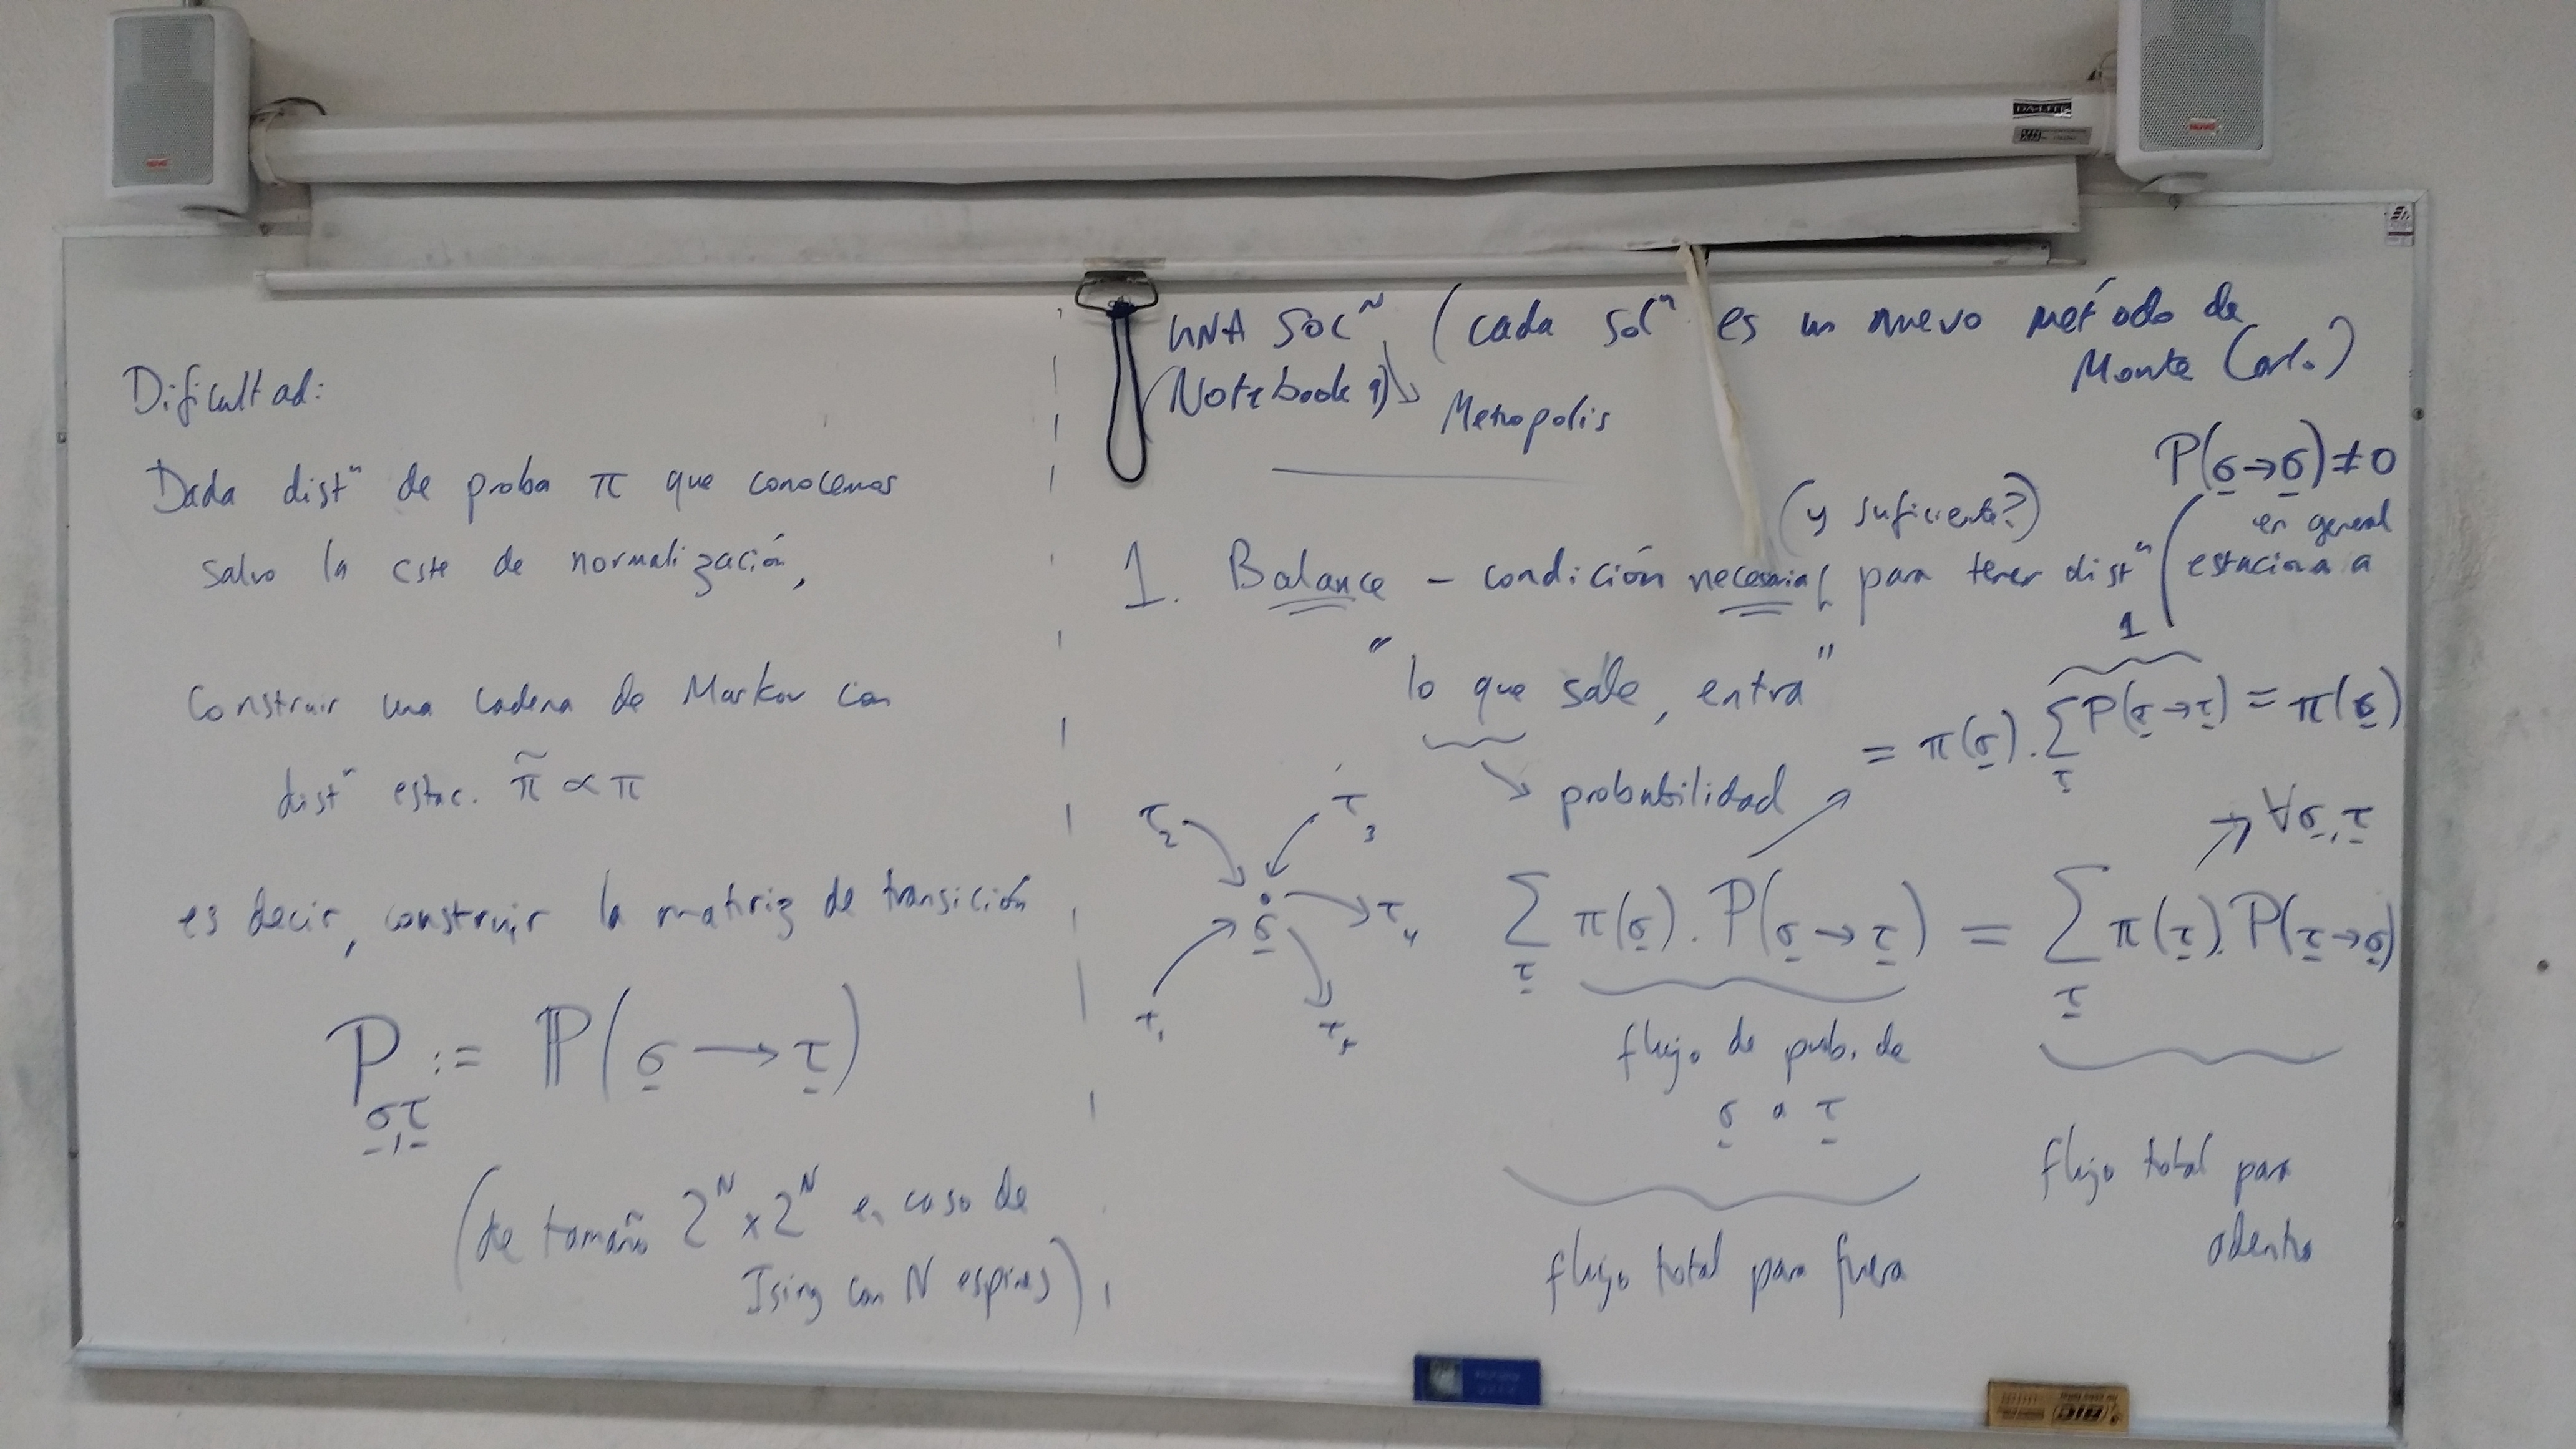 Dificultad:
Dada distⁿ de proba π que conocemos
salvo la cste de normalización,
construir una cadena de Markov con
distⁿ estac. π̃ ∝ π
es decir, construir la matriz de transición
P_{σ,τ} := ℙ(σ → τ)
(de tamaño 2^N × 2^N en caso de
Ising con N espines),
UNA SOLⁿ (cada solⁿ es un nuevo método de
Monte Carlo)
(Notebook 9) ↘ Metropolis
P(σ→σ) ≠ 0
en general
(y suficiente?)
1. Balance – condición necesaria para tener distⁿ estacionaria
"lo que sale, entra"
↘ probabilidad
= π(σ) . ∑_τ P(σ→τ) = π(σ)
1
→ ∀σ, τ
τ₂ τ₃
σ τ₄
τ₁ τ₅
∑_τ π(σ) . P(σ → τ) = ∑_τ π(τ) . P(τ→σ)
flujo de prob. de
σ a τ
flujo total para fuera
flujo total para
adentro
DA-LITE
BIC